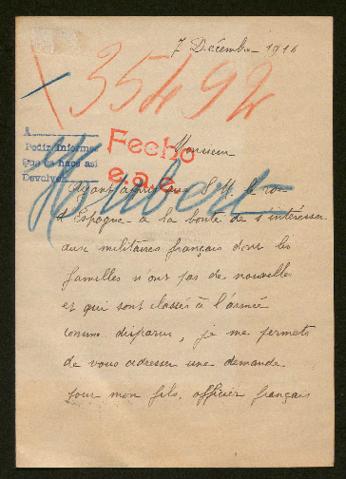 7 Décembre 1916
35492
A
Pedir informes
Que se hace así
Devolver
Fecho
e.a.e.
Monsieur
Ayant appris que S.M. le roi
d'Espagne a la bonté de s'intéresser
aux militaires français dont les
familles n'ont pas de nouvelles
et qui sont classés à l'armée
comme disparus, je me permets
de vous adresser une demande
pour mon fils, officier français